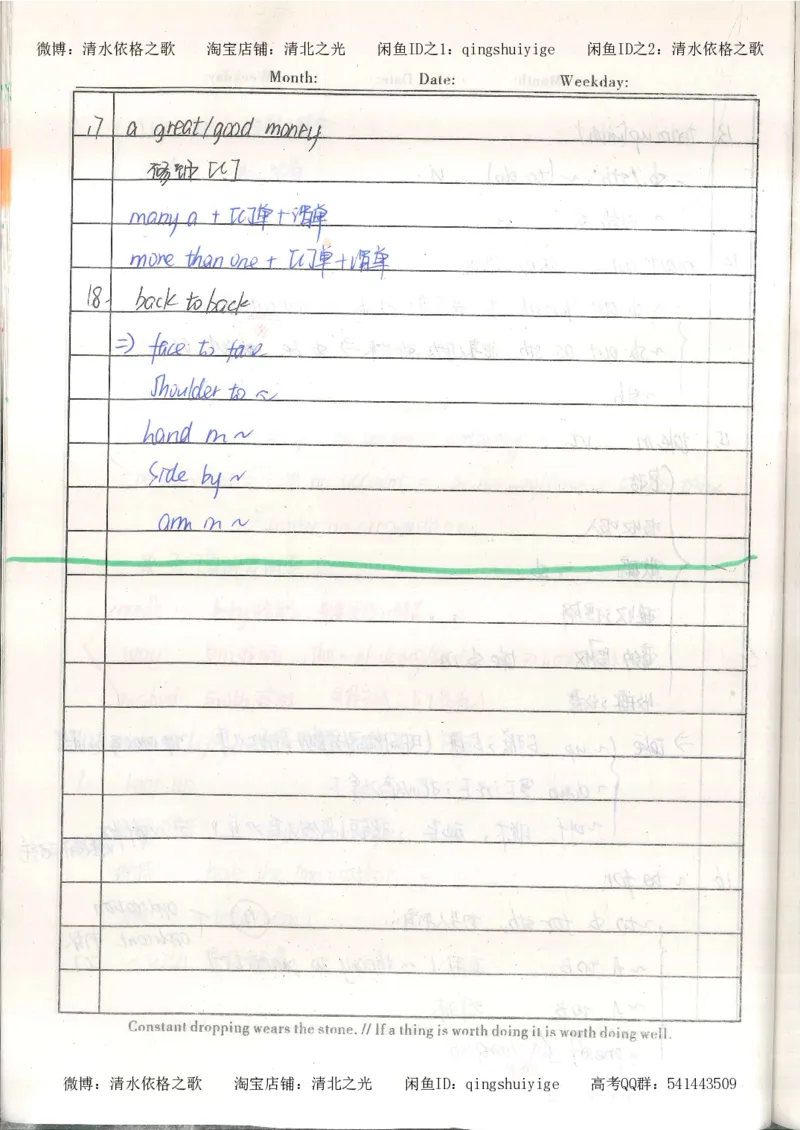 微博：清水依格之歌 淘宝店铺：清北之光 闲鱼ID之1：qingshuiyige 闲鱼ID之2：清水依格之歌
Month: Date: Weekday:
17 a great/good money
[C]
many a + [C]单+谓单
more than one + [C]单+谓单
18. back to back
⇒ face to face
Shoulder to ~
hand in ~
Side by ~
arm in ~
Constant dropping wears the stone. // If a thing is worth doing it is worth doing well.
微博：清水依格之歌 淘宝店铺：清北之光 闲鱼ID：qingshuiyige 高考QQ群：541443509